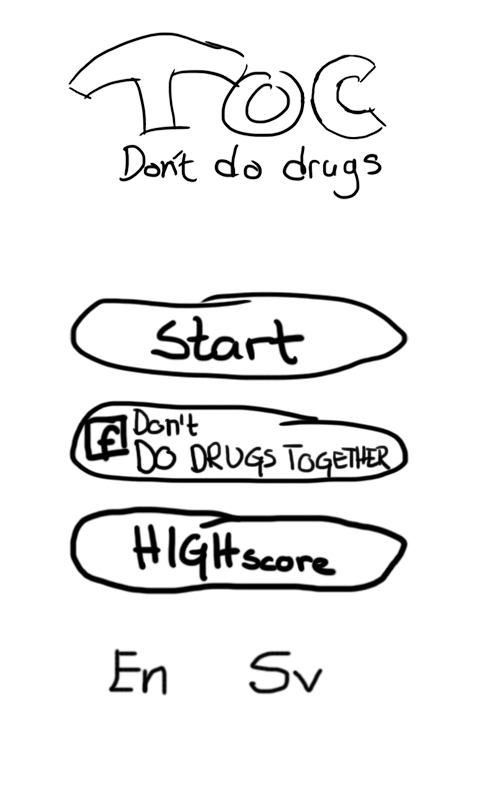 TOC
Don't do drugs
Start
f Don't
DO DRUGS TOGETHER
HIGHscore
En Sv